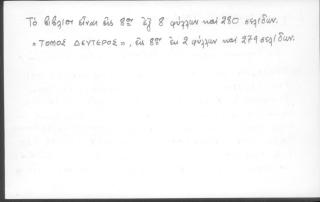 Τό βιβλίον είναι εις 8ον εξ 8 φύλλων καί 280 σελίδων.
«ΤΟΜΟΣ ΔΕΥΤΕΡΟΣ», εις 8ον εκ 2 φύλλων καί 279 σελίδων.